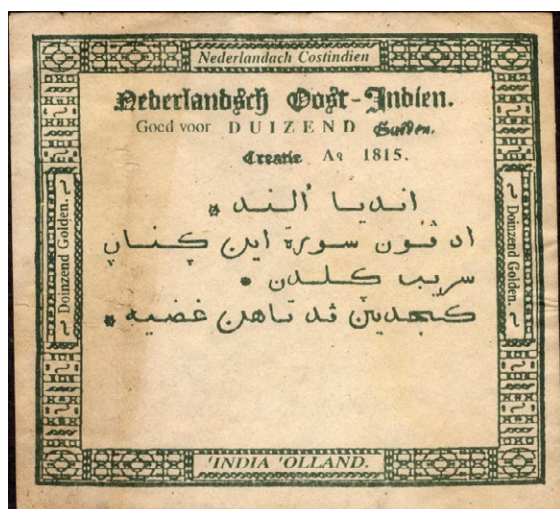 Nederlandach Costindien
Nederlandsch Oost-Indien.
Goed voor DUIZEND Gulden.
Creatie Aº 1815.
انديا ألند *
اد ڤون سورة اين
سريب كلدن *
كجدين ڤد تاهن غضيه *
~ Doinzend Golden. ~
~ Doinzend Golden. ~
'INDIA 'OLLAND.